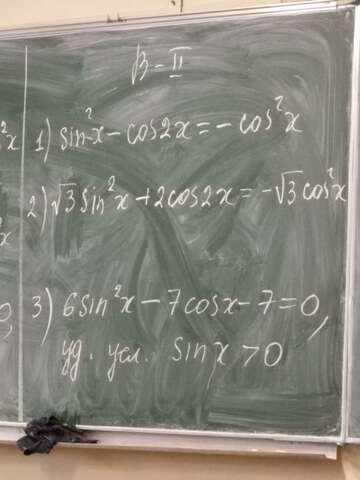 В-II
1) sin²x - cos2x = -cos²x
2) √3 sin²x + 2cos2x = -√3 cos²x
3) 6sin²x - 7cosx - 7 = 0,
уд. усл. sinx > 0